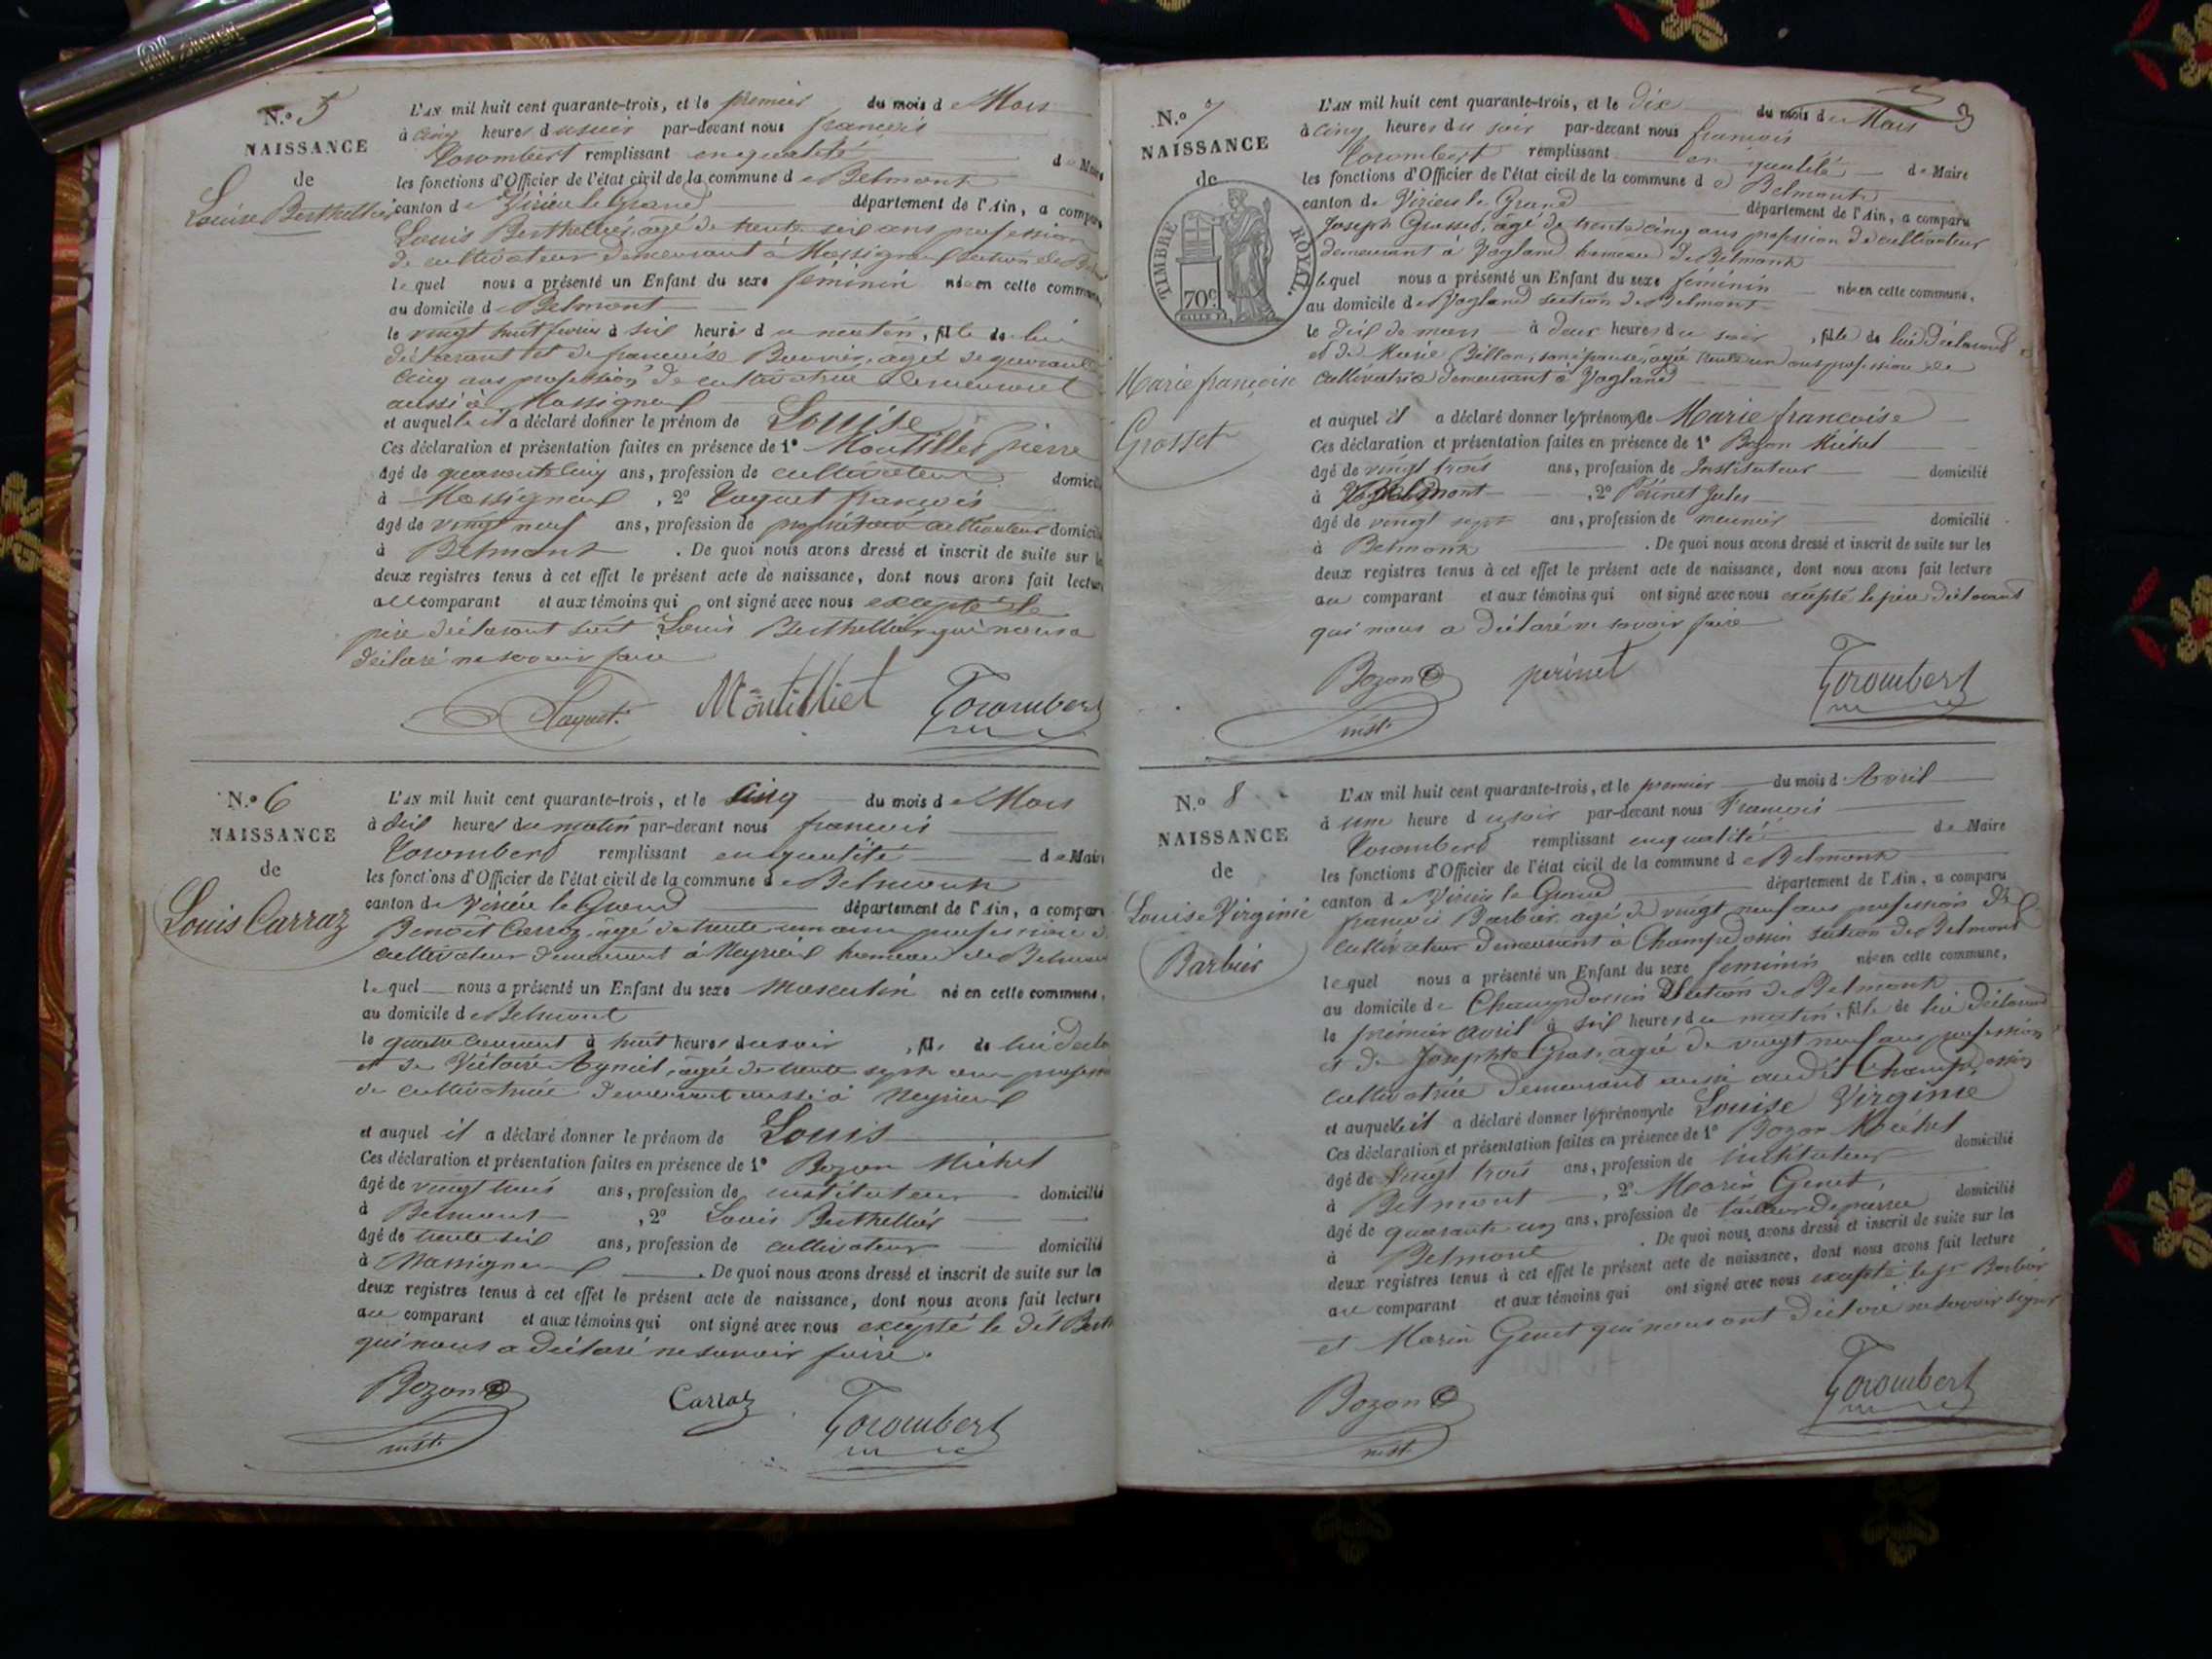 N.º 5
NAISSANCE
de
Louise Berthellier
L'AN mil huit cent quarante-trois, et le premier du mois de Mars
à cinq heures du soir par-devant nous françois
Torombert remplissant en qualité de Maire
les fonctions d'Officier de l'état civil de la commune de Belmont
canton de Virieu le Grand département de l'Ain, a compar
Louis Berthellier, agé de trente six ans profession
de cultivateur demeurant à Massigneul section de Bel
lequel nous a présenté un Enfant du sexe féminin né en cette commune
au domicile de Belmont
le vingt huit fevrier à six heures du matin, fille de lui
déclarant et de francoise Bouvier, agée de quarante
cinq ans profession de cultivatrice demeurant
aussi à Massigneul
et auquelle il a déclaré donner le prénom de Louise
Ces déclaration et présentation faites en présence de 1º Montillet pierre
âgé de quarante cinq ans, profession de cultivateur domicilié
à Massigneul, 2º Taquet françois
âgé de vingt neuf ans, profession de propriétaire cultivateur domicilié
à Belmont. De quoi nous avons dressé et inscrit de suite sur les
deux registres tenus à cet effet le présent acte de naissance, dont nous avons fait lecture
au comparant et aux témoins qui ont signé avec nous excepté le
père déclarant Louis Berthellier qui nous a
déclaré ne savoir faire
Taquet. Montilliet Torombert
N.º 6
NAISSANCE
de
Louis Carraz
L'AN mil huit cent quarante-trois, et le cinq du mois de Mars
à dix heures du matin par-devant nous françois
Torombert remplissant en qualité de Maire
les fonctions d'Officier de l'état civil de la commune de Belmont
canton de Virieu le Grand département de l'Ain, a compar
Benoit Carraz, agé de trente un ans profession de
cultivateur demeurant à Neyrieu hameau de Belmont
lequel nous a présenté un Enfant du sexe Masculin né en cette commune,
au domicile de Belmont
le quatre courant à huit heures du soir, fils de lui décla
et de Victoire Aynié, agée de trente sept ans profession
de cultivatrice demeurant aussi à Neyrieu
et auquel il a déclaré donner le prénom de Louis
Ces déclaration et présentation faites en présence de 1º Bozon Michel
âgé de vingt trois ans, profession de instituteur domicilié
à Belmont, 2º Louis Berthellier
âgé de trente six ans, profession de cultivateur domicilié
à Massigneul. De quoi nous avons dressé et inscrit de suite sur les
deux registres tenus à cet effet le présent acte de naissance, dont nous avons fait lecture
au comparant et aux témoins qui ont signé avec nous excepté le dit Berth
qui nous a déclaré ne savoir faire.
Bozon Carraz Torombert
inst.
3
N.º 7
NAISSANCE
de
TIMBRE ROYAL.
70 c.
Marie françoise
Grosset
L'AN mil huit cent quarante-trois, et le dix du mois de Mars
à cinq heures du soir par-devant nous francois
Torombert remplissant en qualité de Maire
les fonctions d'Officier de l'état civil de la commune de Belmont
canton de Virieu le Grand département de l'Ain, a comparu
Joseph Grosset, agé de trente cinq ans profession de cultivateur
demeurant à Vogland hameau de Belmont
lequel nous a présenté un Enfant du sexe féminin né en cette commune,
au domicile de Vogland section de Belmont
le dix de mars à deux heures du soir, fille de lui déclarant
et de Marie Billon, son épouse, agée trente un ans profession de
cultivatrice demeurant à Vogland
et auquel il a déclaré donner le prénom de Marie francoise
Ces déclaration et présentation faites en présence de 1º Bozon Michel
âgé de vingt trois ans, profession de Instituteur domicilié
à Belmont, 2º Périnet Jules
âgé de vingt sept ans, profession de meunier domicilié
à Belmont. De quoi nous avons dressé et inscrit de suite sur les
deux registres tenus à cet effet le présent acte de naissance, dont nous avons fait lecture
au comparant et aux témoins qui ont signé avec nous excepté le père déclarant
qui nous a déclaré ne savoir faire
Bozon perinet Torombert
inst.
N.º 8
NAISSANCE
de
Louise Virginie
Barbier
L'AN mil huit cent quarante-trois, et le premier du mois d'Avril
à une heure du soir par-devant nous François
Torombert remplissant en qualité de Maire
les fonctions d'Officier de l'état civil de la commune de Belmont
canton de Virieu le Grand département de l'Ain, a comparu
francois Barbier agé de vingt neuf ans profession de
cultivateur demeurant à Champdossin section de Belmont
lequel nous a présenté un Enfant du sexe feminin né en cette commune,
au domicile de Champdossin Section de Belmont
le premier avril à six heures du matin, fille de lui déclarant
et de Josephte Gros, agée de vingt neuf ans profession
cultivatrice demeurant aussi audit Champdossin
et auquelle il a déclaré donner le prénom de Louise Virginie
Ces déclaration et présentation faites en présence de 1º Bozon Michel
âgé de Vingt trois ans, profession de instituteur domicilié
à Belmont, 2º Marin Genet,
âgé de quarante un ans, profession de tailleur de pierre domicilié
à Belmont. De quoi nous avons dressé et inscrit de suite sur les
deux registres tenus à cet effet le présent acte de naissance, dont nous avons fait lecture
au comparant et aux témoins qui ont signé avec nous excepté le sr Barbier
et Marin Genet qui nous ont déclaré ne savoir signer
Bozon Torombert
inst.